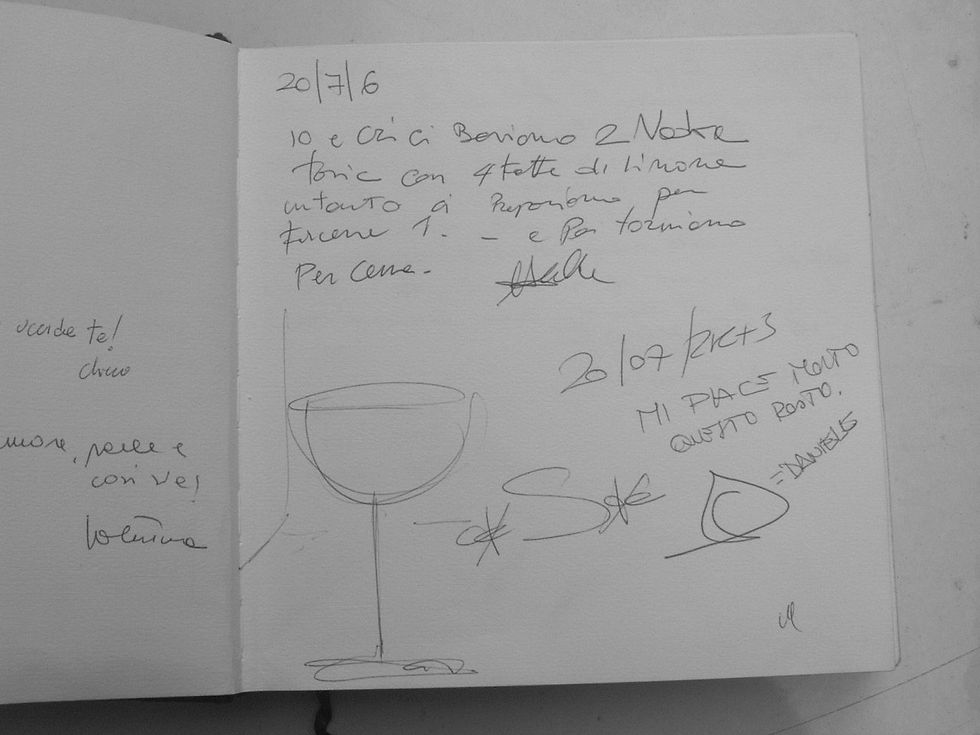 uccide te!
amore, pace e
così ve!
20/7/6
IO e Cri ci Beviamo 2 Vodka
tonic con 4 fette di limone
intanto ci Prepariamo per
Farcene 1. - e Poi torniamo
Per Cena.
20/07/
MI PIACE MOLTO
QUESTO POSTO.
= DANIELE